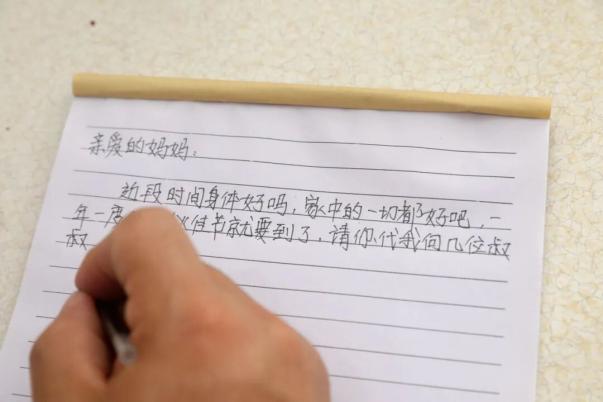 亲爱的妈妈:
近段时间身体好吗,家中的一切都好吧,一
年一度 秋佳节就要到了,请你代我向几位叔
叔